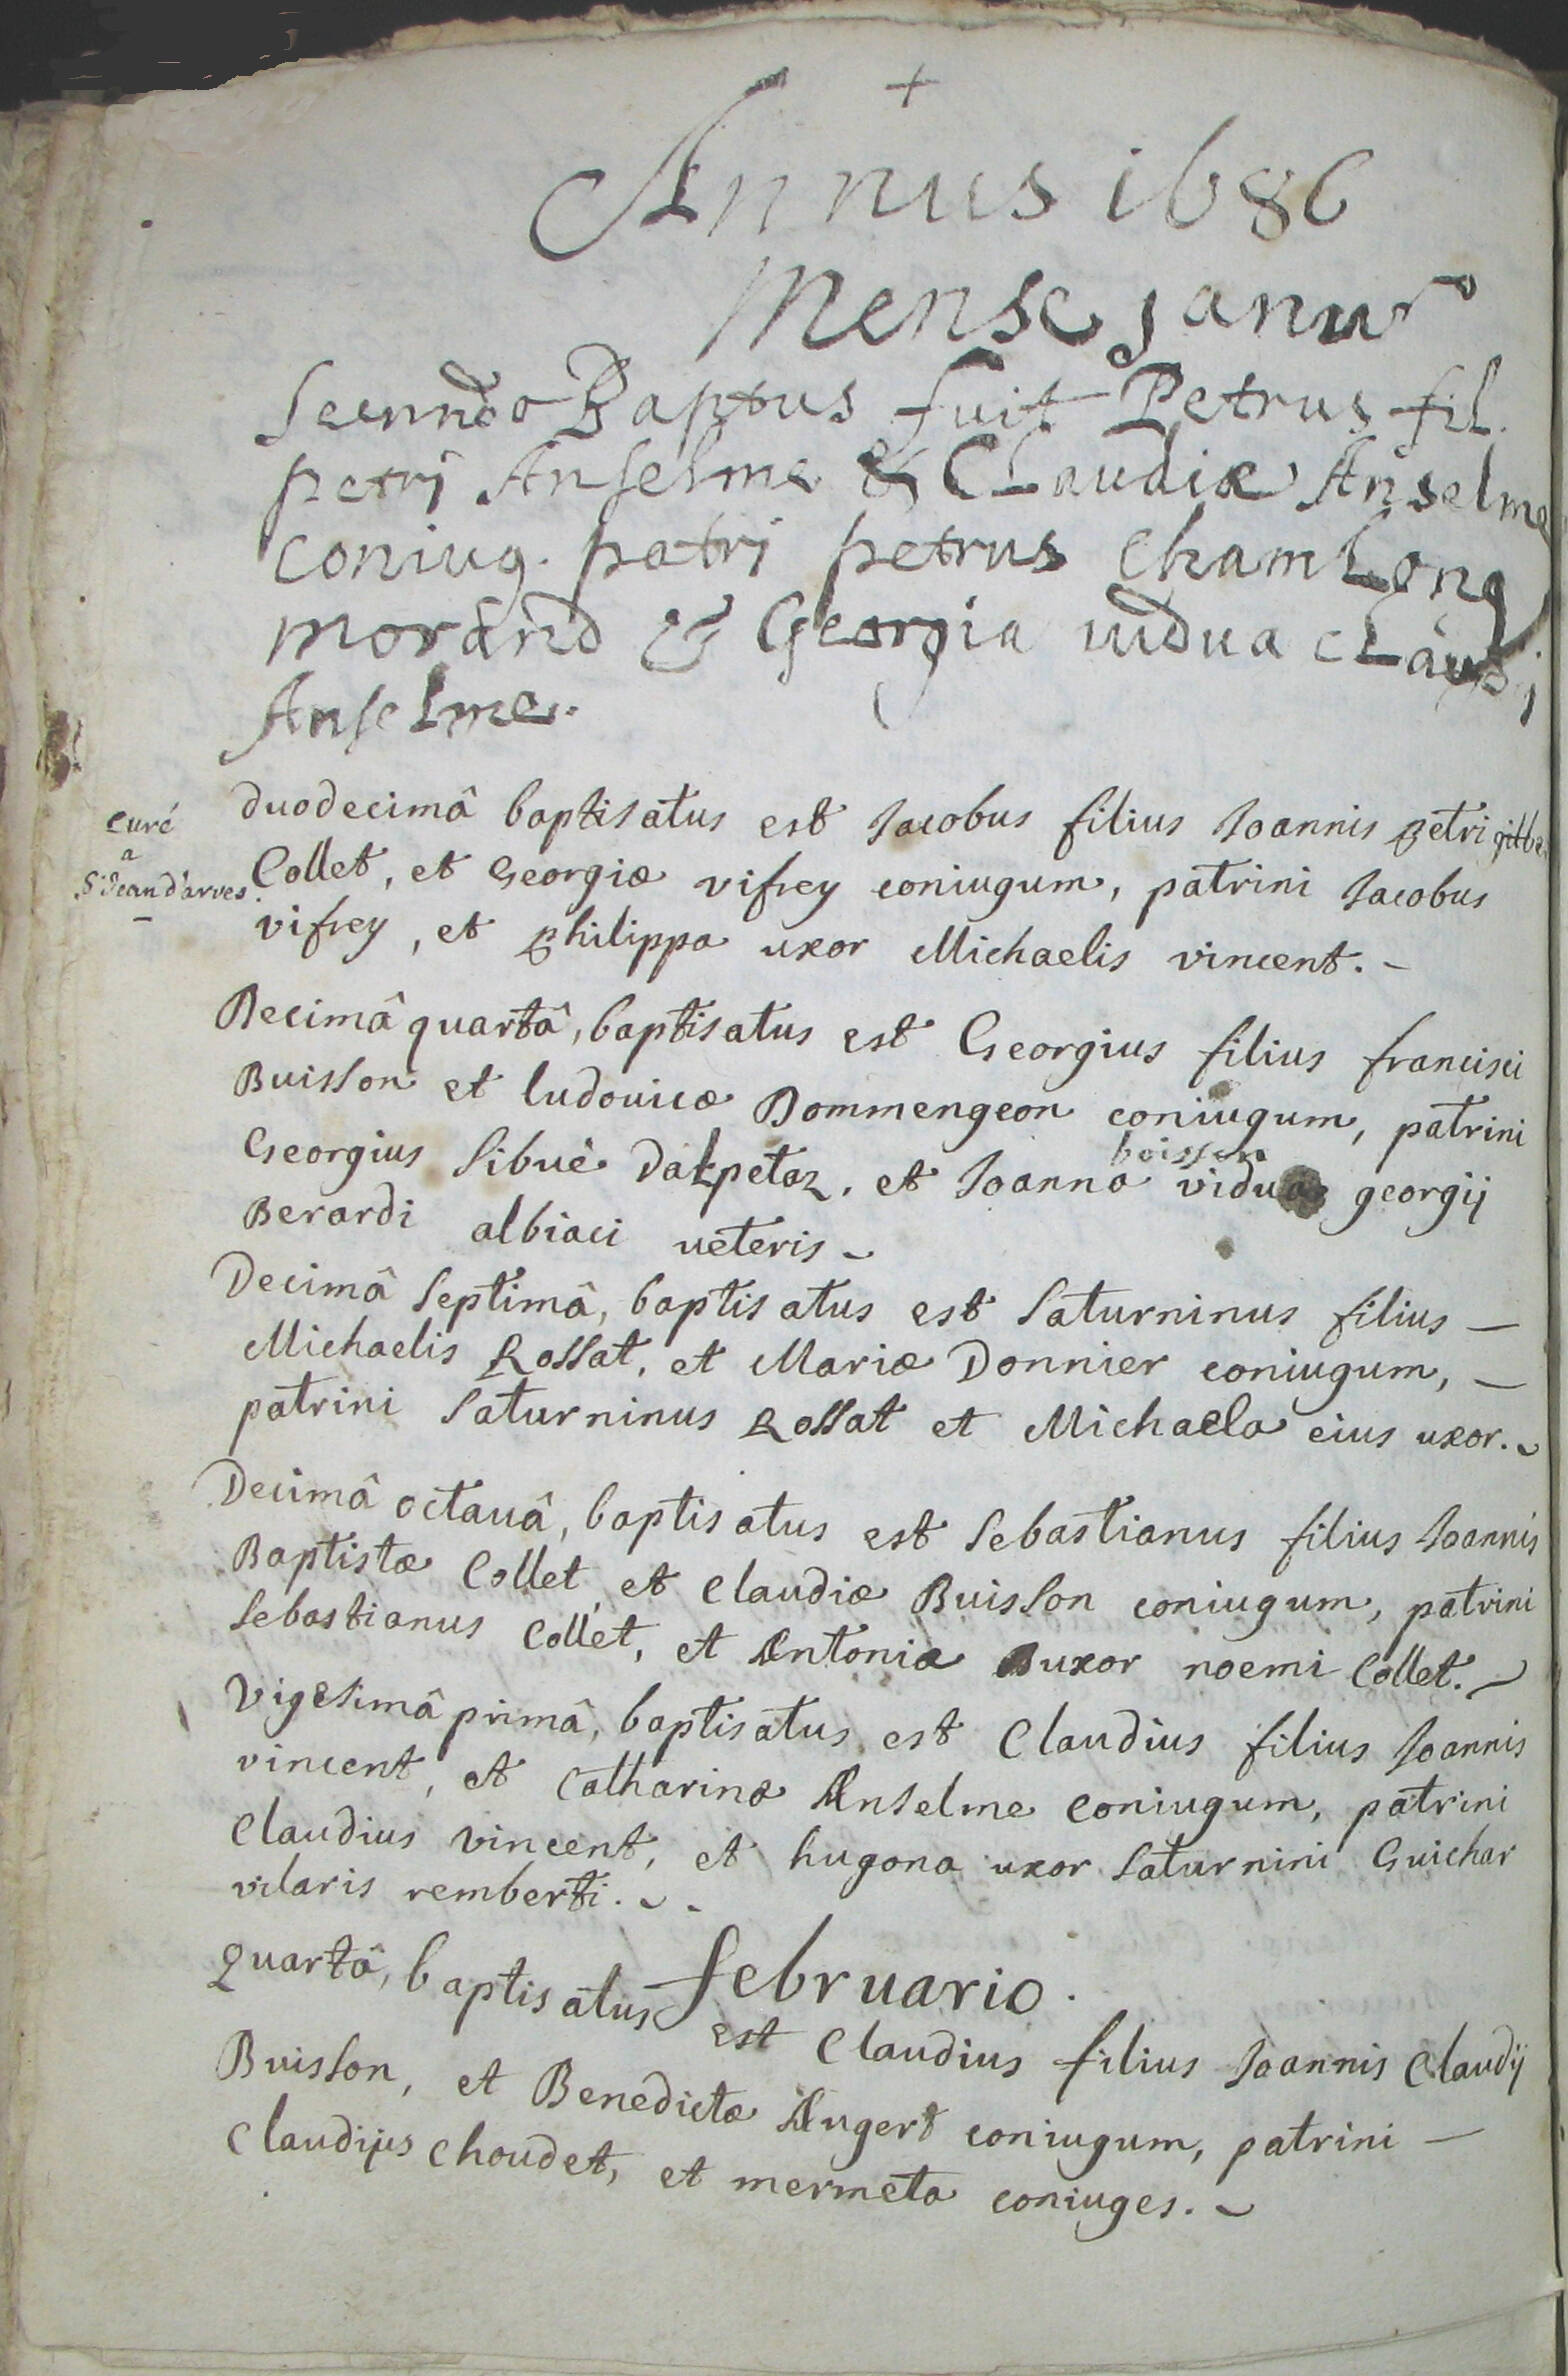 +
Annus 1686
Mense Januro
Secundo Baptus fuit Petrus fil.
petri Anselme & Claudiæ Anselme
coniug. patri petrus chamLong
morand & Georgia uidua cLaudj
AnseLme.
duodecimâ baptisatus est Jacobus filius Joannis petri
curé
a
St Jean d'arves
Collet, et Georgiæ vifrey coniugum, patrini Jacobus
vifrey, et philippa uxor Michaelis vincent. -
Decimâ quartâ, baptisatus est Georgius filius francisci
Buisson et ludouicæ Dommengeon coniugum, patrini
boisson
Georgius Sibué Dalpetaz, et Joanna vidua georgij
Berardi albiaci ueteris -
Decimâ Septimâ, baptisatus est Saturninus filius —
Michaelis Rossat, et Mariæ Donnier coniugum, —
patrini Saturninus Rossat et Michaela eius uxor. -
Decimâ octauâ, baptisatus est Sebastianus filius Joannis
Baptistæ Collet, et Claudiæ Buisson coniugum, patrini
Sebastianus Collet, et Antonia uxor noemi Collet. -
Vigesimâ primâ, baptisatus est Claudius filius Joannis
vincent, et Catharinæ Anselme coniugum, patrini
Claudius vincent, et hugona uxor Saturnini Guichar
vilaris remberti. - -
februario.
Quartâ, baptisatus est Claudius filius Joannis Claudij
Buisson, et Benedictæ Augert coniugum, patrini —
Claudius Choudet, et mermeta coniuges. -